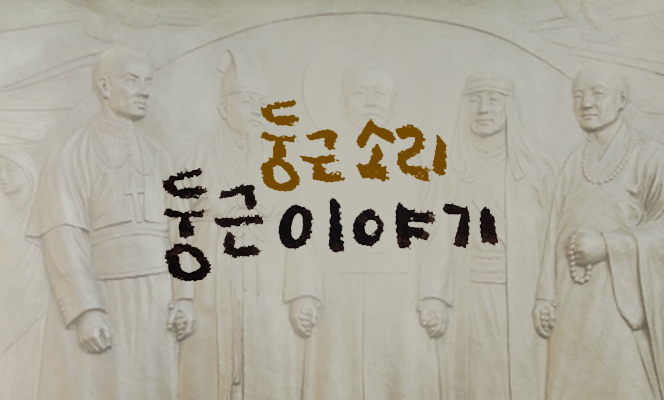 둥근 소리
둥근 이야기